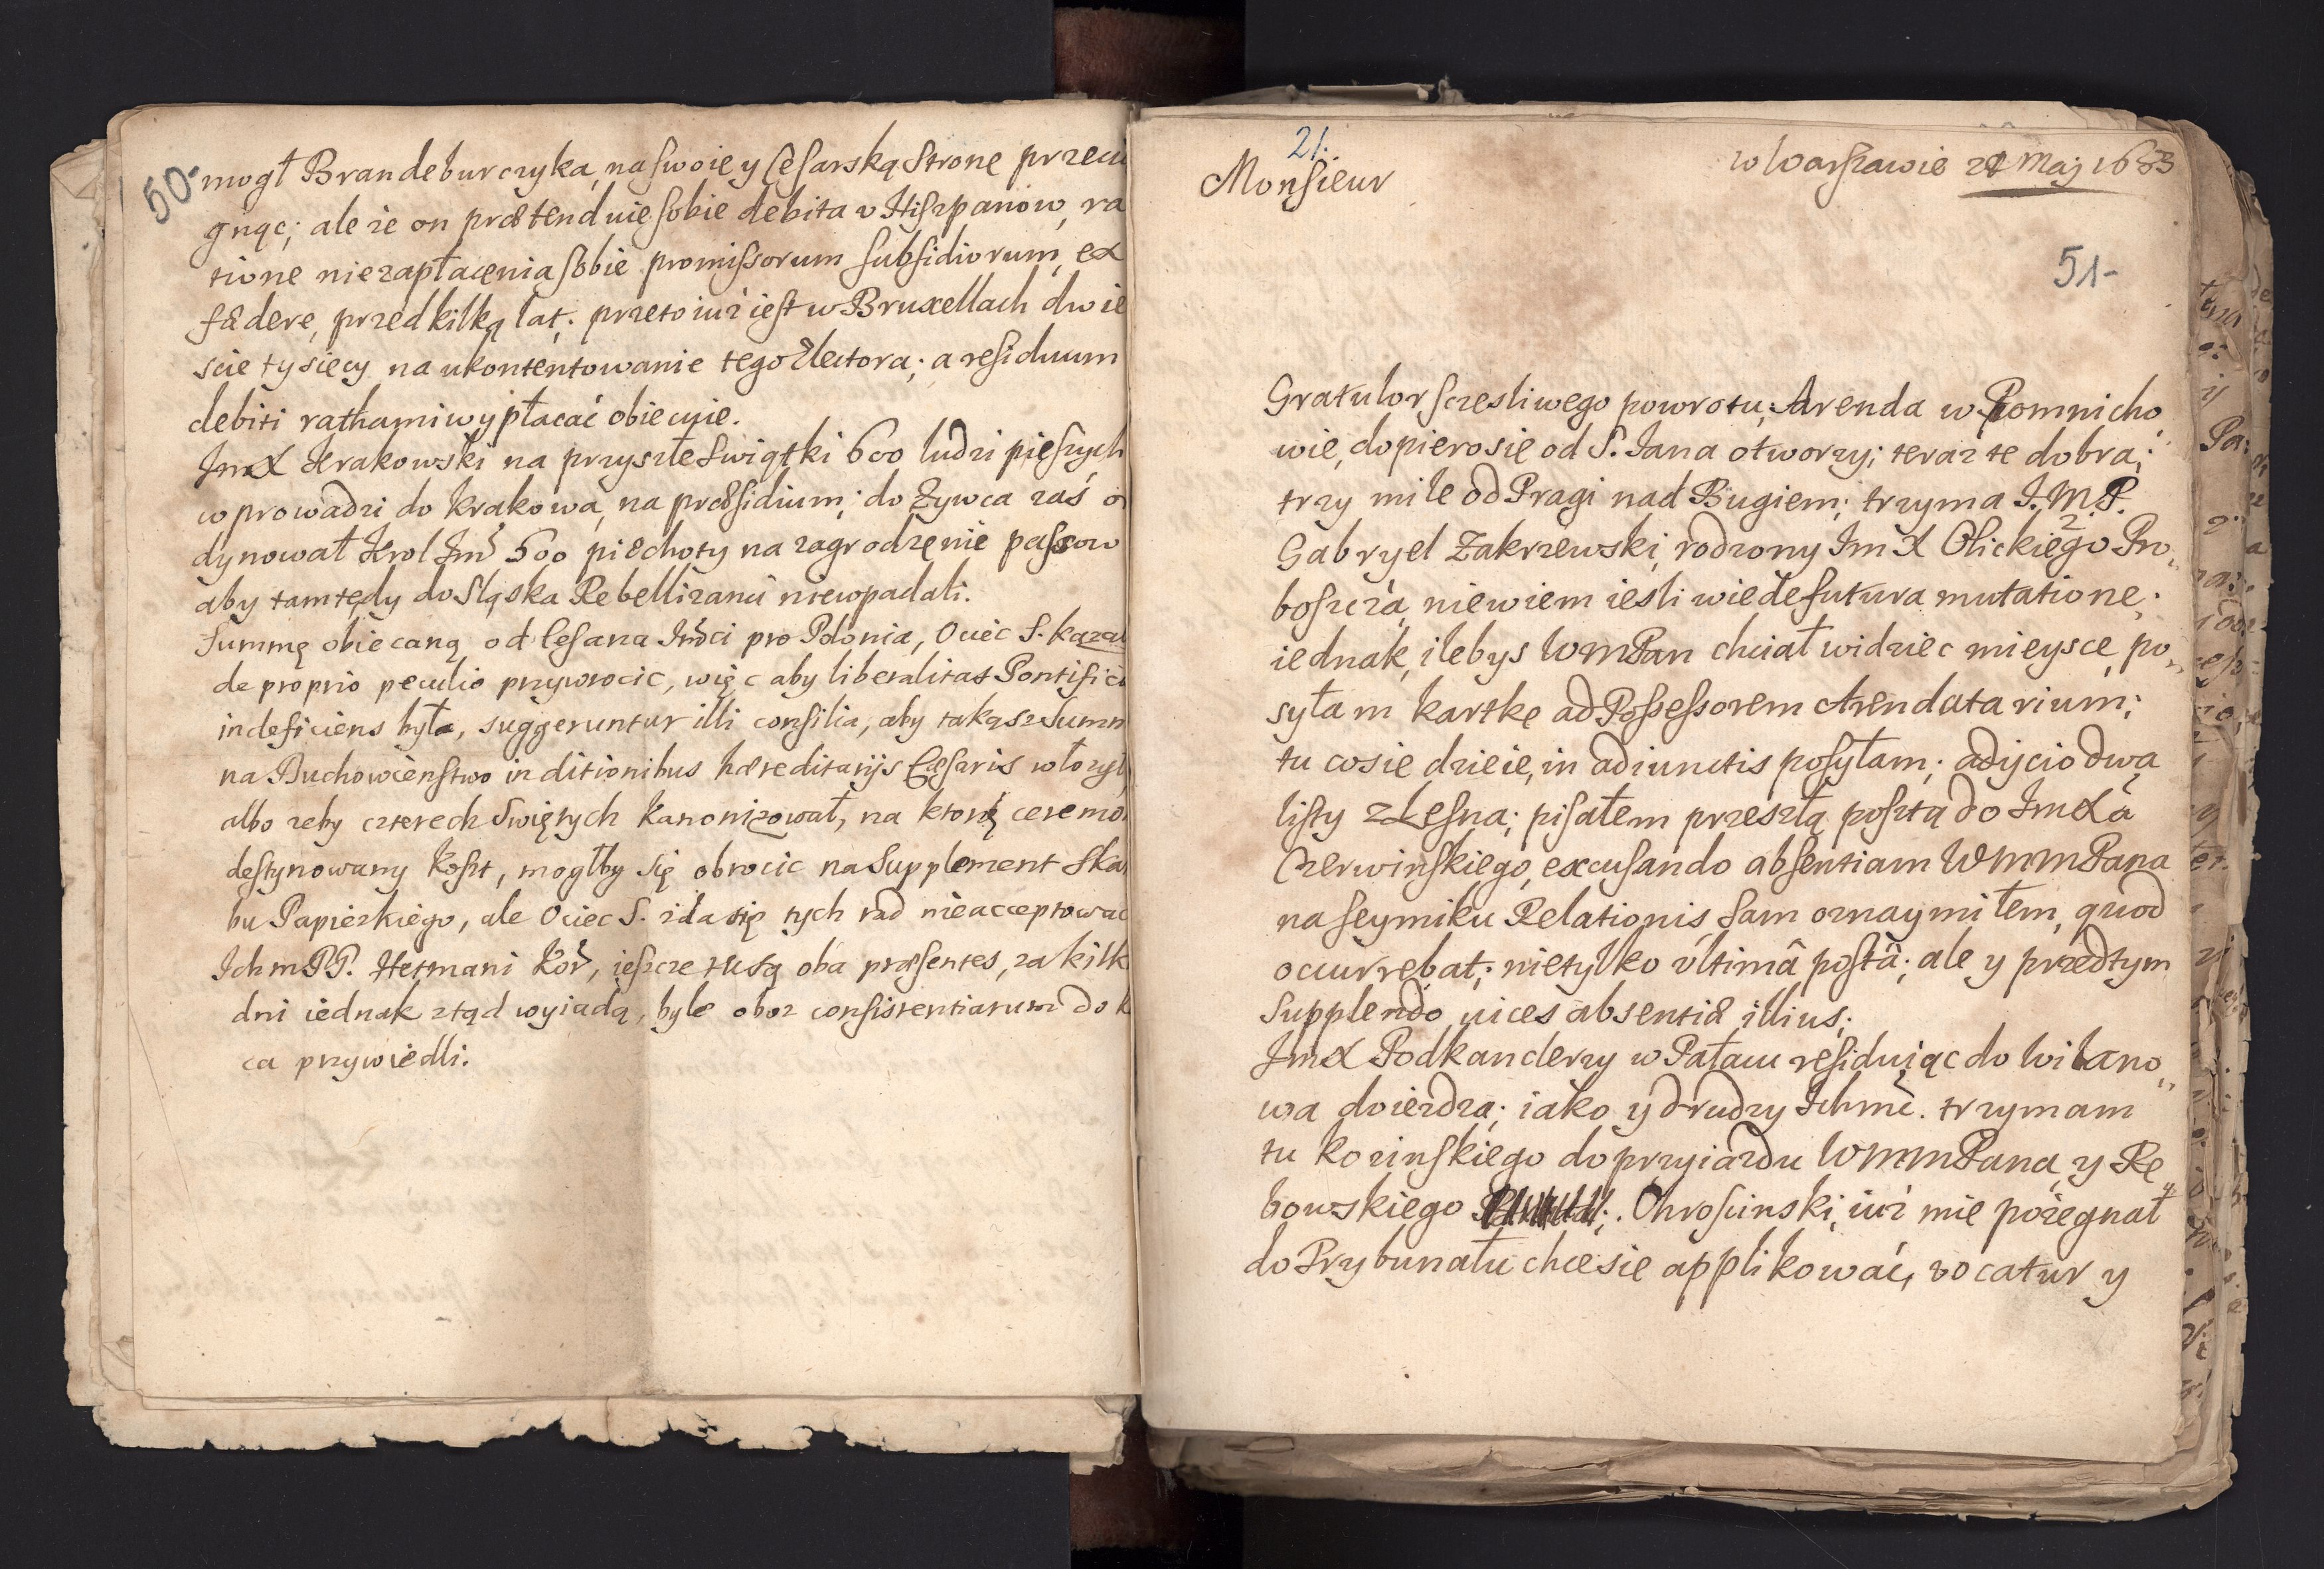 50-
mogł Brandeburczyka, na swoię y Cesarską stronę przeci
gnąc; ale że on prætenduie sobie debita u Hiszpanow, ra
tione niezapłacenia sobie promissorum subsidiorum, ex
fædere, przed kilką lat; przeto iuż iest w Bruxellach dwie
scie tysięcy na ukontentowanie tego Elektora; a residuum
debiti rathami wypłacać obiecuie.
JmX Krakowski na przyszłe Swiątki 600 ludzi pieszych
wprowadzi do Krakowa, na præsidium; do Zywca zaś or
dynował Krol Jmć 600 piechoty na zagrodzęnie passow
aby tamtędy do Sląska Rebellizanci niewpadali.
Summę obiecaną od Cesarza Jmći pro Polonia, Ociec S. kazał
de proprio peculio przywrocic, więc aby liberalitas Pontifici
indeficiens była, suggeruntur illi consilia, aby takąsz summ
na Duchowienstwo in ditionibus hæreditarijs Cæsaris włożył,
albo zeby czterech Swiętych kanonizował, na ktorą ceremo
destynowany koszt, mogłby się obrocic na Supplement Skar
bu Papiezkiego, ale Ociec S. zda się tych rad nieacceptowac
Ichm PP. Hetmani Kor, ieszcze tu są oba præsentes, za kilk
dni iednak ztąd wyiadą, byle oboz consistentiarum do k
ca przywiedli.
21.
w Warszawie 21 Maj 1683
Monsieur
51-
Gratulor sczesliwego powrotu; Arenda w Pomnicho„
wie, dopiero sie od S. Jana otworzy; teraz te dobra;
trzy mile od Pragi nad Bugiem; trzyma J.M.P.
Gabryel Zakrzewski, rodzony JmX Olickiego Pro„
boszcza, niewiem iesli wie de futura mutatione;
iednak, ilebys WmPan chciał widziec mieysce, po„
syłam kartkę ad Possessorem Arendatarium;
tu co sie dzieie, in adiunctis posyłam; adijcio dwa
listy z Lesna; pisałem przeszłą posztą do JmXa
Czerwinskiego, excusando absentiam WmmPana
na seymiku Relationis, sam oznaymiłem, quod
occurrebat; nietylko ultimâ postâ; ale y przedtym
supplendo vices absentiæ illius;
JmX Podkanclerzy w Pałacu residuiąc do Wilano„
wa doieżdza; iako y drudzy Ichmć. trzymam
tu Kozinskiego do przyiazdu WmmPana, y Rę„
bowskiego. Chroscinski, iuż mie pożegnał
do Trybunału chce sie applikować, vocatur y